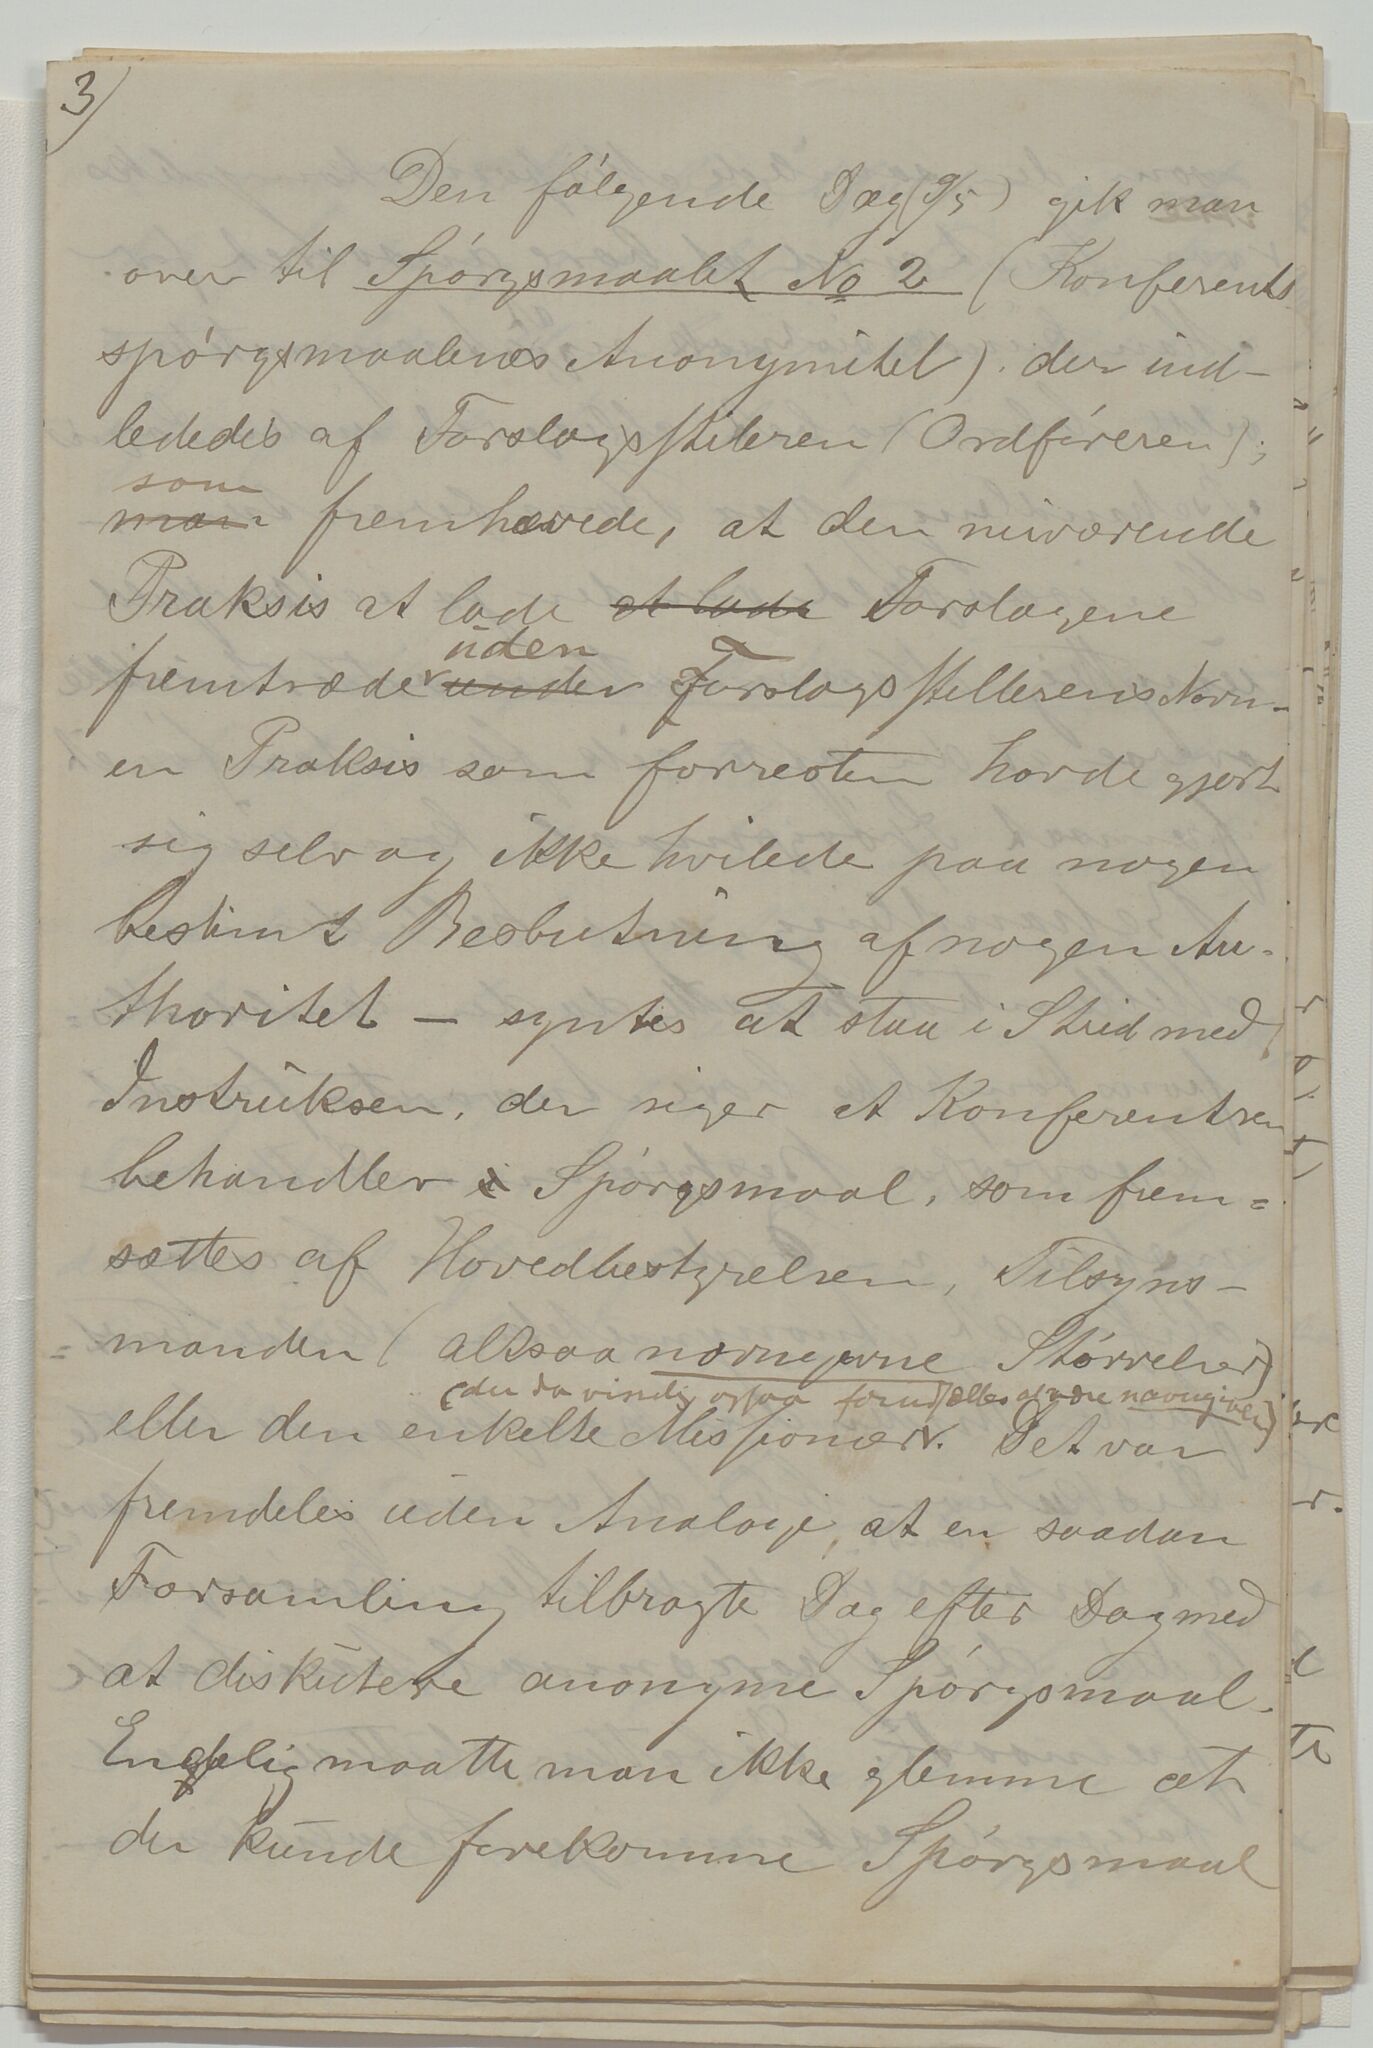 3)
Den følgende Dag (9/5) gik man
over til Spørgsmaalet No 2 (Konferents-
spørgsmaalenes Anonymitet). der ind-
lededes af Forslagsstilleren (Ordføreren);
som
man fremhævede, at den nuværende
Praksis at lade at lade Forslagene
uden
fremtræde under Forslagsstillerens Navn-
en Praksis som forresten havde gjort
sig selv og ikke hvilede paa nogen
bestimt Beslutning af nogen Au-
thoritet — syntes at staa i Strid med
Instruksen, der siger at Konferentsen
behandler i Spørgsmaal, som frem=
sættes af Hovedbestyrelsen, Tilsyns-
manden (altsaa navngivne Størrelser)
(der da vistnok ogsaa forudsættes at være navngiven)
eller den enkelte Missionær. Det var
fremdeles uden Analogi, at en saadan
Forsamling tilbragte Dag efter Dag med
at diskutere anonyme Spørgsmaal.
Endelig maatte man ikke glemme at
der kunde forekomme Spørgsmaal